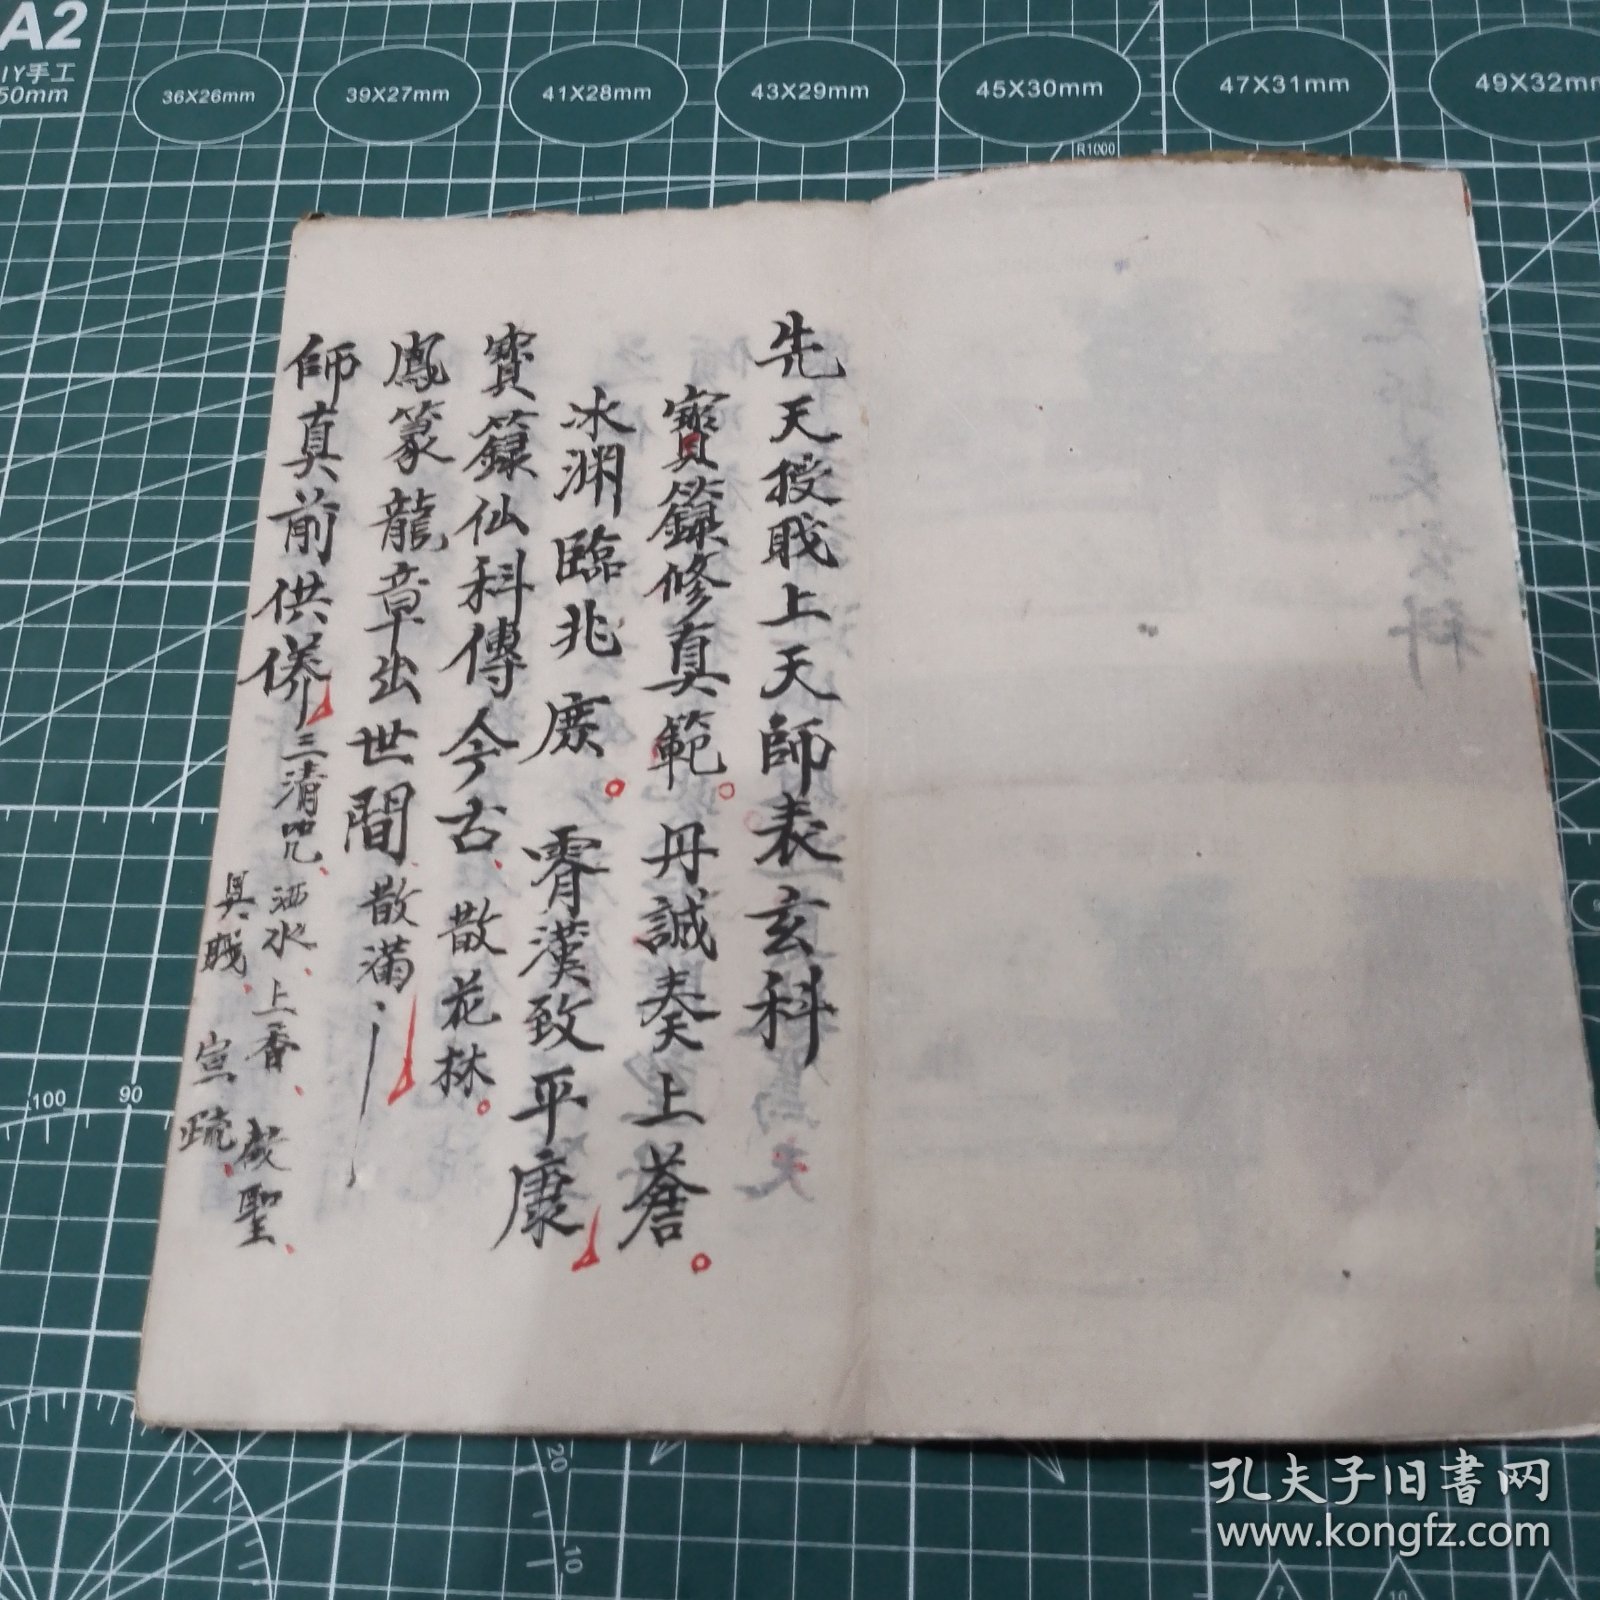 先天授戝上天師表玄科
寳籙修真範。丹誠奏上蒼。
冰渊臨兆庶。霄漢致平康
寳籙仙科傳今古、散花林。
鳳篆龍章出世間、散滿
師真前供养
三清咒、洒水、上香、啟聖、
具職、宣疏、
A2
DIY手工
50mm
36X26mm
39X27mm
41X28mm
43X29mm
45X30mm
47X31mm
49X32mm
R1000
100
90
20
10
孔夫子旧書网
www.kongfz.com